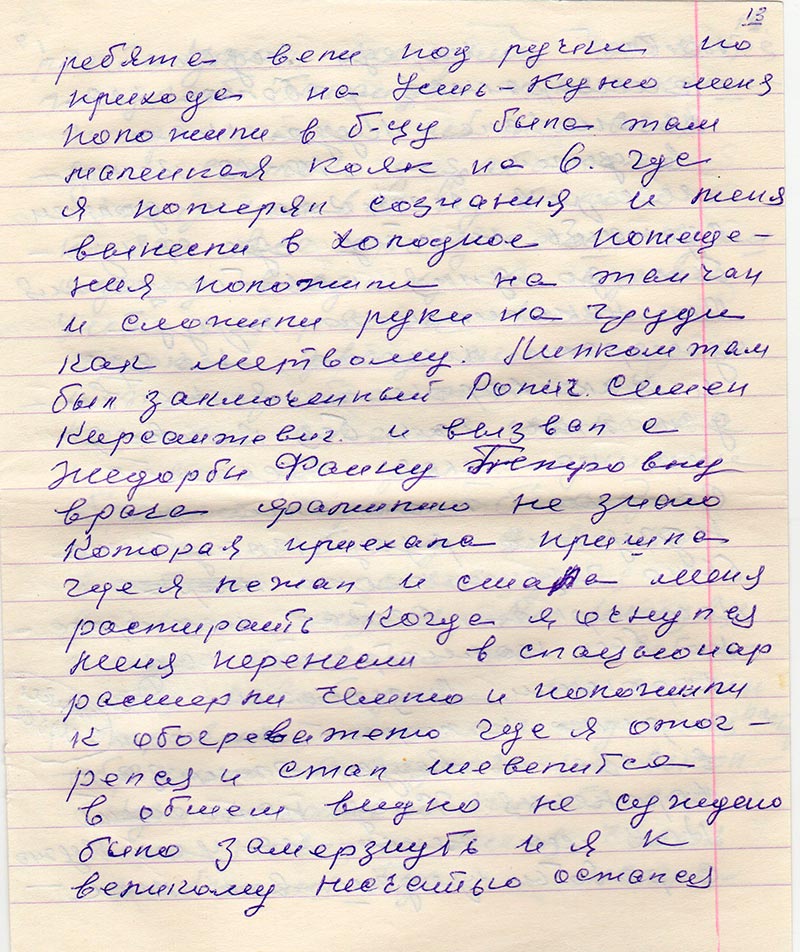 13
ребята вели под ручки по
приходе на Усть-Кужо меня
положили в б-цу была там
маленкая кояк на 6. где
я потерял сознания и меня
вынесли в холодное помеще-
ния положили на тапчан
и сложили руки на груди
как мертвому. Липком там
был заключенный Ропич. Семен
Кирсантович. и вызвал с
Жедорби Фаину Петровну
врача фамилию не знаю
которая приехала пришла
где я лежал и стала меня
растирать когда я очнулся
меня перенесли в стацыонар
растерли чемто и положили
к обогревателю где я отог-
релся и стал шевелится
в общем видно не суждено
было замерзнуть и я к
великому несчатью остался